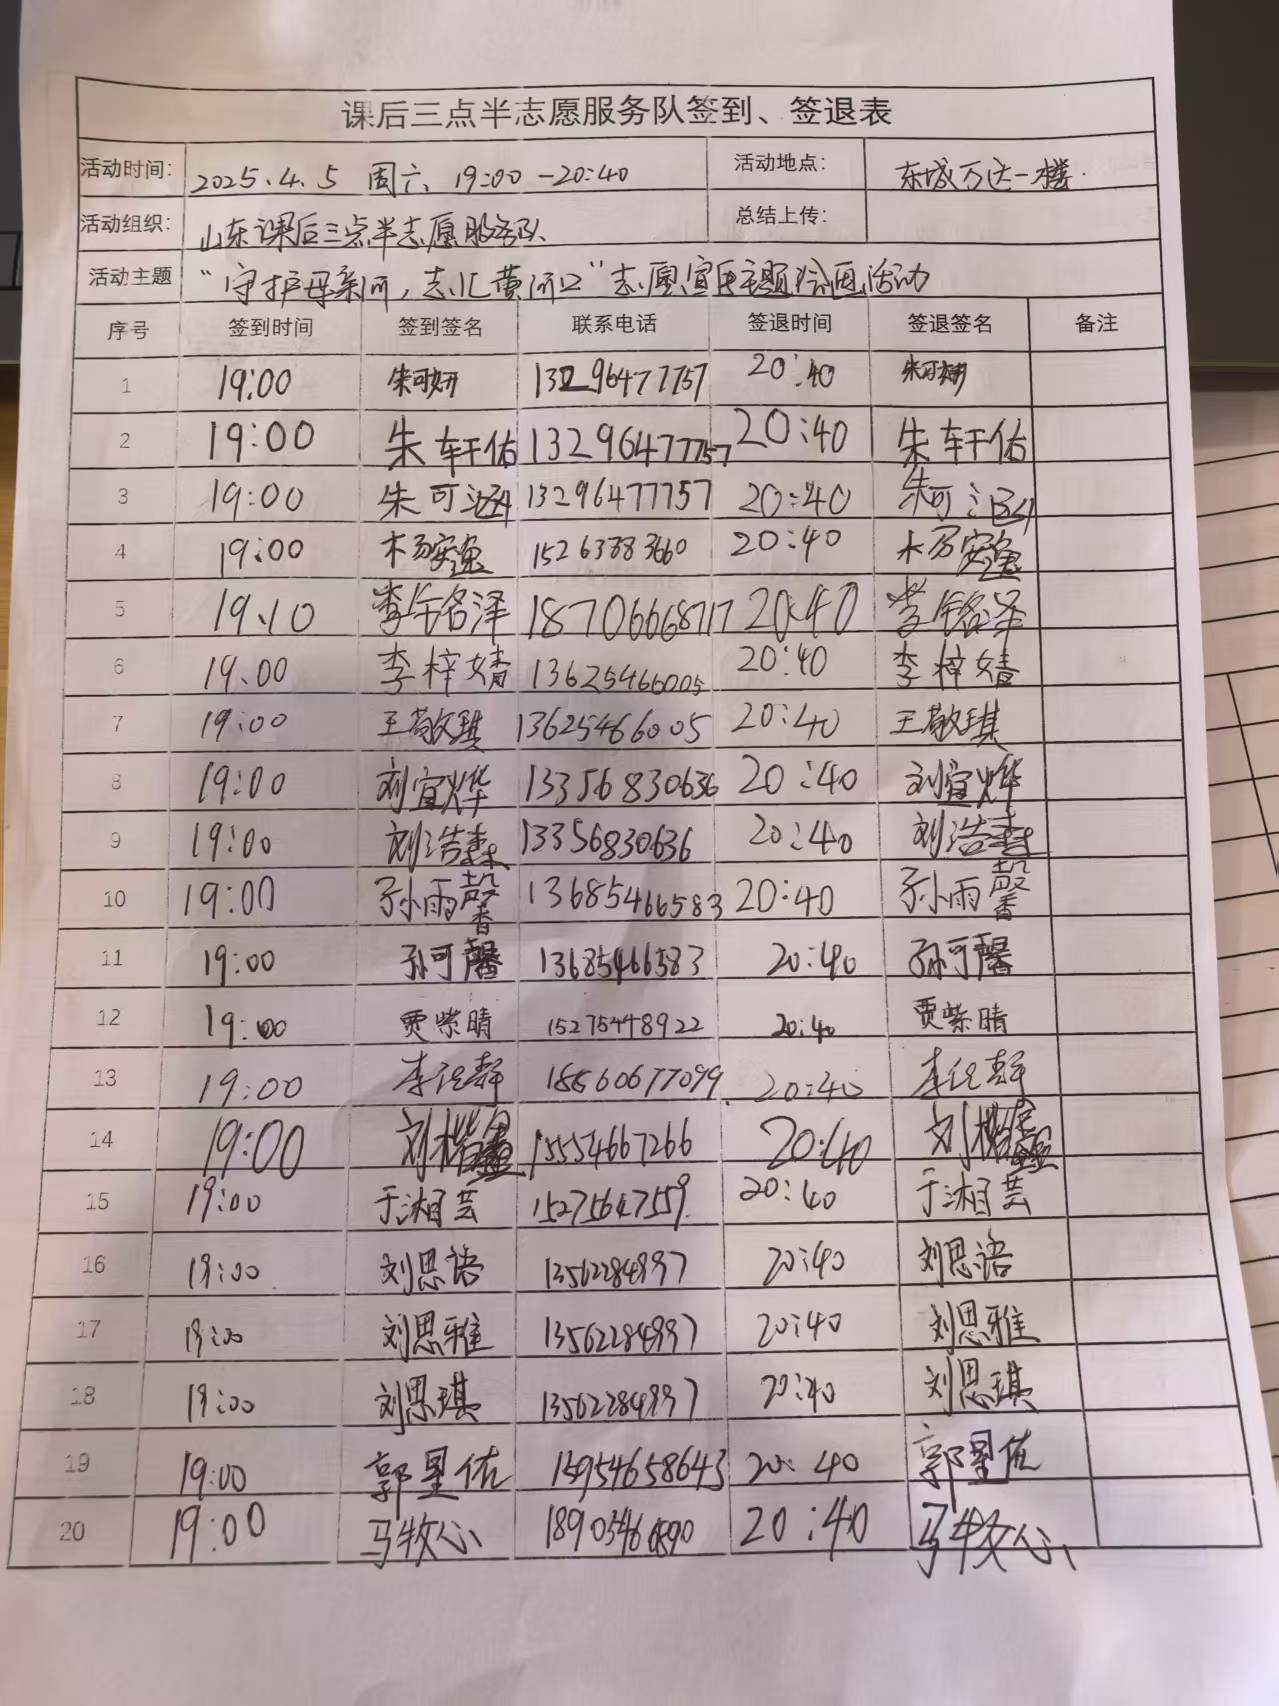 课后三点半志愿服务队签到、签退表
活动时间: 2025.4.5 周六 19:00-20:40 活动地点: 东城万达一楼.
活动组织: 山东课后三点半志愿服务队 总结上传:
活动主题 "守护母亲河，志汇黄河口"志愿宣主题绘画活动
序号 签到时间 签到签名 联系电话 签退时间 签退签名 备注
1 19:00 朱可妍 13296477757 20:40 朱可妍
2 19:00 朱轩佑 13296477757 20:40 朱轩佑
3 19:00 朱可涵 13296477757 20:40 朱可涵
4 19:00 15263883660 20:40
5 19.10 李铭泽 18706668717 20:40 李铭泽
6 19.00 李梓婧 13625466005 20:40 李梓婧
7 19:00 王敬琪 13625466005 20:40 王敬琪
8 19:00 刘宜烨 13356830636 20:40 刘宜烨
9 19:00 刘浩森 13356830636 20:40 刘浩森
10 19:00 孙雨馨 13685466583 20:40 孙雨馨
11 19:00 孙可馨 13685466583 20:40 孙可馨
12 19:00 贾紫晴 15275448922 20:40 贾紫晴
13 19:00 20:40
14 19:00 15554667266 20:40
15 19:00 于湘芸 15275647559. 20:40 于湘芸
16 19:00 刘思语 13562284997 20:40 刘思语
17 19:00 刘思雅 13562284997 20:40 刘思雅
18 19:00 刘思琪 13562284997 20:40 刘思琪
19 19:00 郭星佑 15954658643 20:40 郭星佑
20 19:00 马牧心 20:40 马牧心